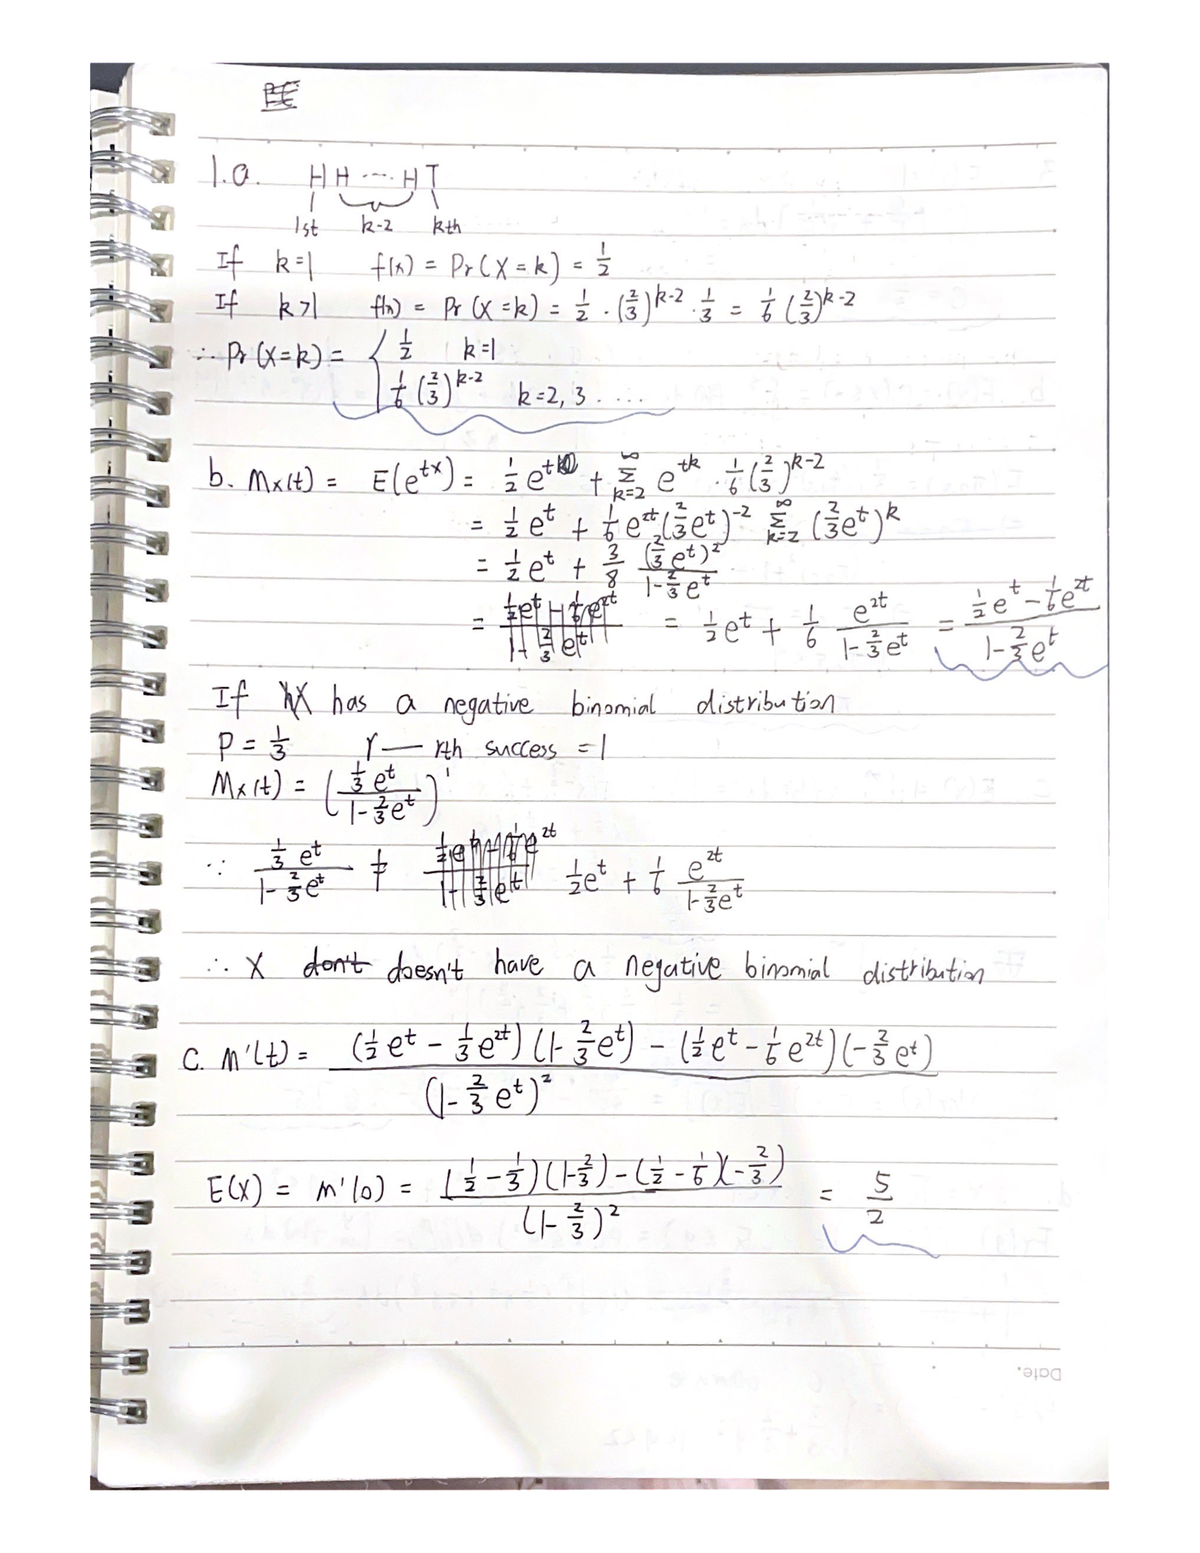 1.a. H H ---- H T
1st k-2 kth
If k=1 f(x) = Pr(X=k) = 1/2
If k>1 f(x) = Pr(X=k) = 1/2 · (2/3)^{k-2} · 1/3 = 1/6 (2/3)^{k-2}
∴ Pr(X=k) = { 1/2 k=1
1/6 (2/3)^{k-2} k=2, 3 ....
b. Mx(t) = E(e^{tx}) = 1/2 e^t + Σ_{k=2}^∞ e^{tk} · 1/6 (2/3)^{k-2}
= 1/2 e^t + 1/6 e^{2t} (2/3 e^t)^{-2} Σ_{k=2}^∞ (2/3 e^t)^k
= 1/2 e^t + 3/8 (2/3 e^t)^2 / (1-2/3 e^t)
= 1/2 e^t + 1/6 e^{2t} / (1-2/3 e^t) = (1/2 e^t - 1/6 e^{2t}) / (1-2/3 e^t)
If X has a negative binomial distribution
P = 1/3 r — rth success = 1
Mx(t) = ( 1/3 e^t / (1-2/3 e^t) )^1
∵ 1/3 e^t / (1-2/3 e^t) ≠ 1/2 e^t + 1/6 e^{2t} / (1-2/3 e^t)
∴ X don't doesn't have a negative binomial distribution
c. m'(t) = ((1/2 e^t - 1/3 e^{2t})(1-2/3 e^t) - (1/2 e^t - 1/6 e^{2t})(-2/3 e^t)) / (1-2/3 e^t)^2
E(X) = m'(0) = ((1/2-1/3)(1-2/3)-(1/2-1/6)(-2/3)) / (1-2/3)^2 = 5/2
Date.